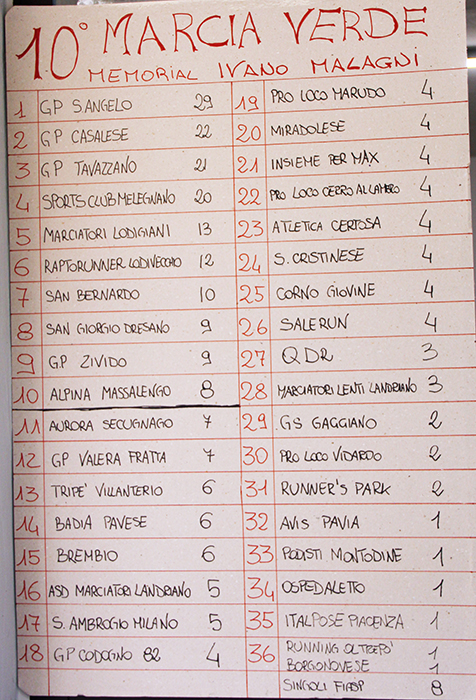 10° MARCIA VERDE
MEMORIAL IVANO MALAGNI
1 GP S.ANGELO 29
2 GP CASALESE 22
3 GP TAVAZZANO 21
4 SPORTS CLUB MELEGNANO 20
5 MARCIATORI LODIGIANI 13
6 RAPTORUNNER LODIVECCHIO 12
7 SAN BERNARDO 10
8 SAN GIORGIO DRESANO 9
9 G.P ZIVIDO 9
10 ALPINA MASSALENGO 8
11 AURORA SECUGNAGO 7
12 GP VALERA FRATTA 7
13 TRIPE' VILLANTERIO 6
14 BADIA PAVESE 6
15 BREMBIO 6
16 ASD MARCIATORI LANDRIANO 5
17 S. AMBROGIO MILANO 5
18 GP CODOGNO 82 4
19 PRO LOCO MARUDO 4
20 MIRADOLESE 4
21 INSIEME PER MAX 4
22 PRO LOCO CERRO AL LAMBRO 4
23 ATLETICA CERTOSA 4
24 S. CRISTINESE 4
25 CORNO GIOVINE 4
26 SALERUN 4
27 QDR 3
28 MARCIATORI LENTI LANDRIANO 3
29 GS GAGGIANO 2
30 PRO LOCO VIDARDO 2
31 RUNNER'S PARK 2
32 AVIS PAVIA 1
33 PODISTI MONTODINE 1
34 OSPEDALETTO 1
35 ITALPOSE PIACENZA 1
36 RUNNING OLTREPO' 1
BORGONOVESE 1
SINGOLI FIASP 8